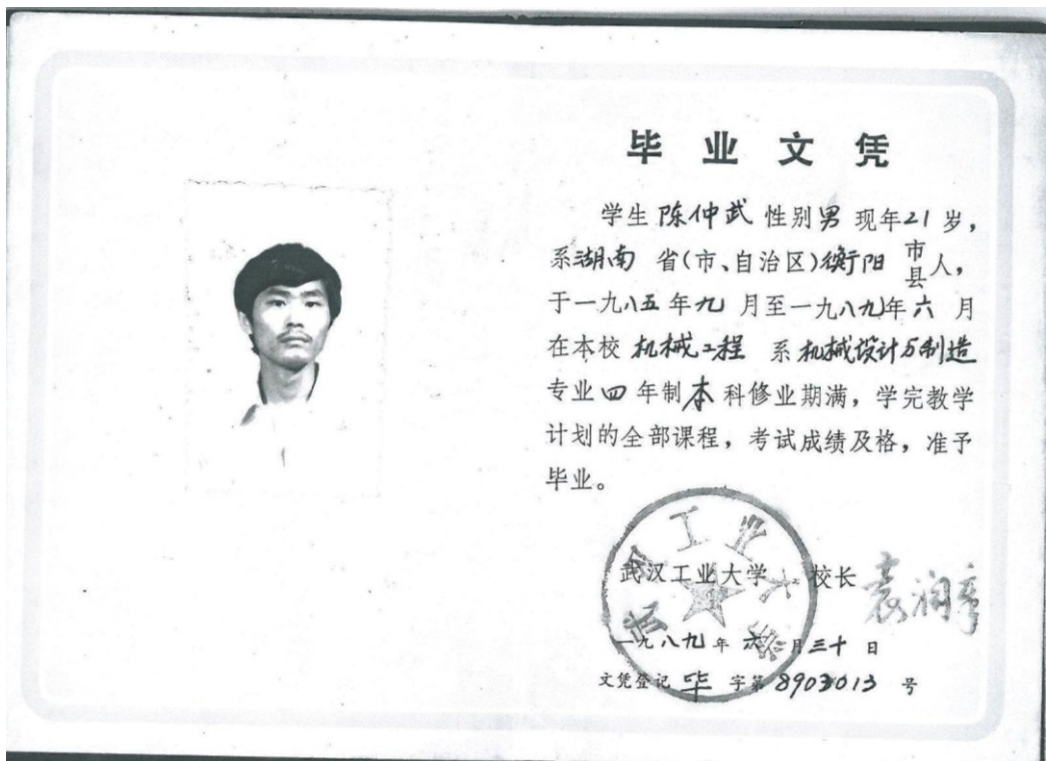 毕业文凭
学生 陈仲武 性别 男 现年 21 岁，
系 湖南 省(市、自治区) 衡阳 市县 人，
于一九八五年九月至一九八九年六月
在本校 机械工程 系 机械设计与制造
专业 四 年制 本 科修业期满，学完教学
计划的全部课程，考试成绩及格，准予
毕业。
武汉工业大学 校长 袁润章
一九八九年六月三十日
文凭登记 毕 字第 8903013 号
武汉工业大学